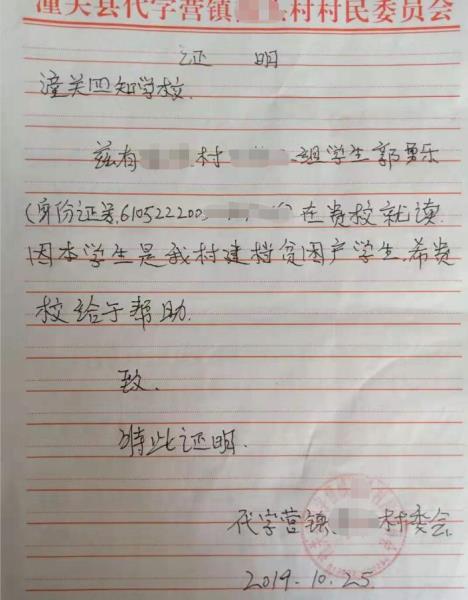 潼关县代字营镇 村村民委员会
证 明
潼关四知学校.
兹有 村 组学生郭 乐
(身份证号,610522200 )在贵校就读.
因本学生是我村建档贫困户学生.希贵
校给于帮助.
致.
特此证明.
代字营镇 村委会.
2019.10.25.